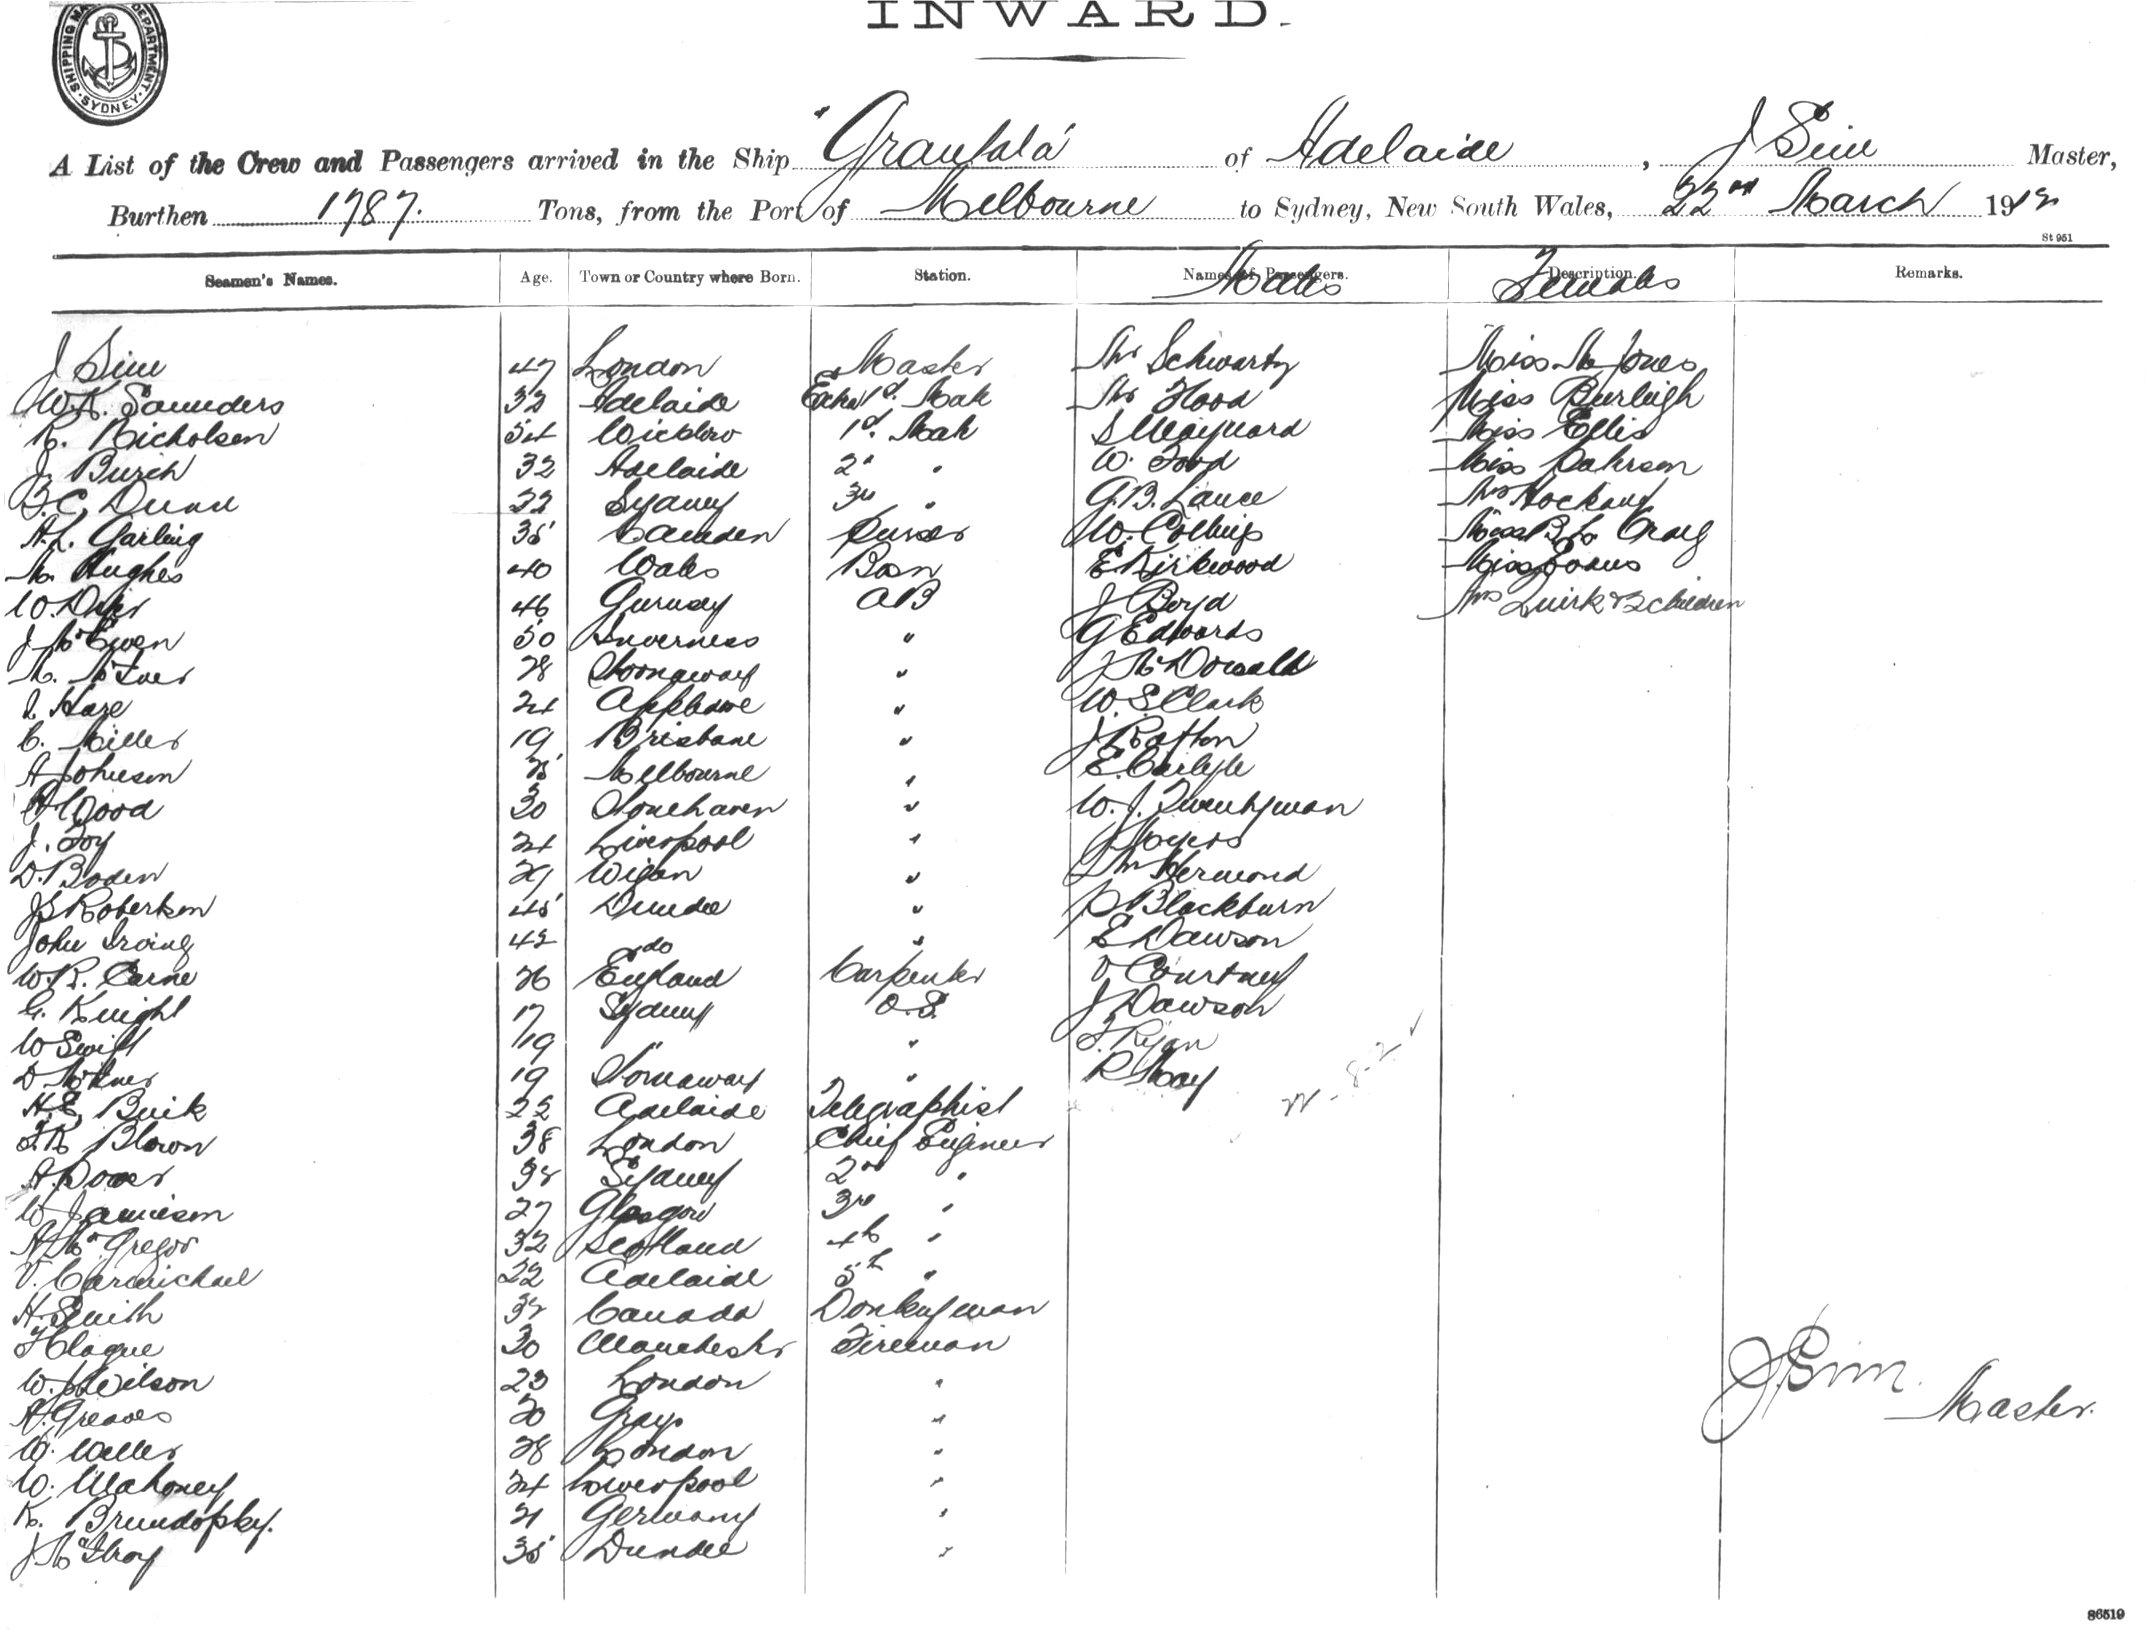 INWARD.
SHIPPING MA DEPARTMENT. SYDNEY.
A List of the Crew and Passengers arrived in the Ship "Grantala" of Adelaide, J Sim Master,
Burthen 1787. Tons, from the Port of Melbourne to Sydney, New South Wales, 22nd March 1912
St 951
Seamen's Names. Age. Town or Country where Born. Station. Names of Passengers. Males Description. Females Remarks.
J Sim 47 London Master Mr Schwartz Miss M Jones
W.K. Saunders 32 Adelaide Extra 1st. Mate Mr Hood Miss Burleigh
R. Nicholsen 54 Wicklow 1st. Mate S Maynard Miss Ellis
J. Burch 32 Adelaide 2nd " W. Miss
B.C. Dunn 22 Sydney 3rd " G.B. Lance Mrs
A.L. Garling 35 Camden Purser W. Collings Miss B.L. Craig
M. Hughes 40 Wales Bosn E Kirkwood Miss Evans
W. 46 Gurnsey AB J Boyd Mrs Quirk & 2 children
J. McEwen 50 Inverness " G Edwards
M. McIver 28 Stornaway " J McDonald
Hare 24 " W. S. Clark
C. Miller 19 Brisbane " J Rafton
A Johnson 25 Melbourne " E. Carlyle
A Wood 30 Stonehaven " W. J. Twentyman
J. Foy 24 Liverpool " Moyers
D. Boden 29 Wigan " Mr Hermond
J S Robertson 45 Dundee " P Blackburn
John Irving 42 do " E Dawson
W.R. Carne 26 England Carpenter V Courtney
G. Knight 17 Sydney O.S. J Dawson
W Swift 19 " " F. Ryan
D McIver 19 Stornaway " R May
H.E. Buik 22 Adelaide Telegraphist
F.R. Blown 38 London Chief Engineer
A. Dover 38 Sydney 2nd "
W Jamieson 27 Glasgow 3rd "
A McGregor 32 Scotland 4th "
V. Carmichael 22 Adelaide 5th "
H. Smith 32 Canada Donkeyman
Hague 30 Manchester Fireman
W. J Wilson 23 London "
A. Greaves 30 Grays "
W. Weller 28 London "
W. Mahoney 24 Liverpool "
K. Brundofsky. 21 Germany "
J McIlroy 35 Dundee "
J Sim.
Master.
86519